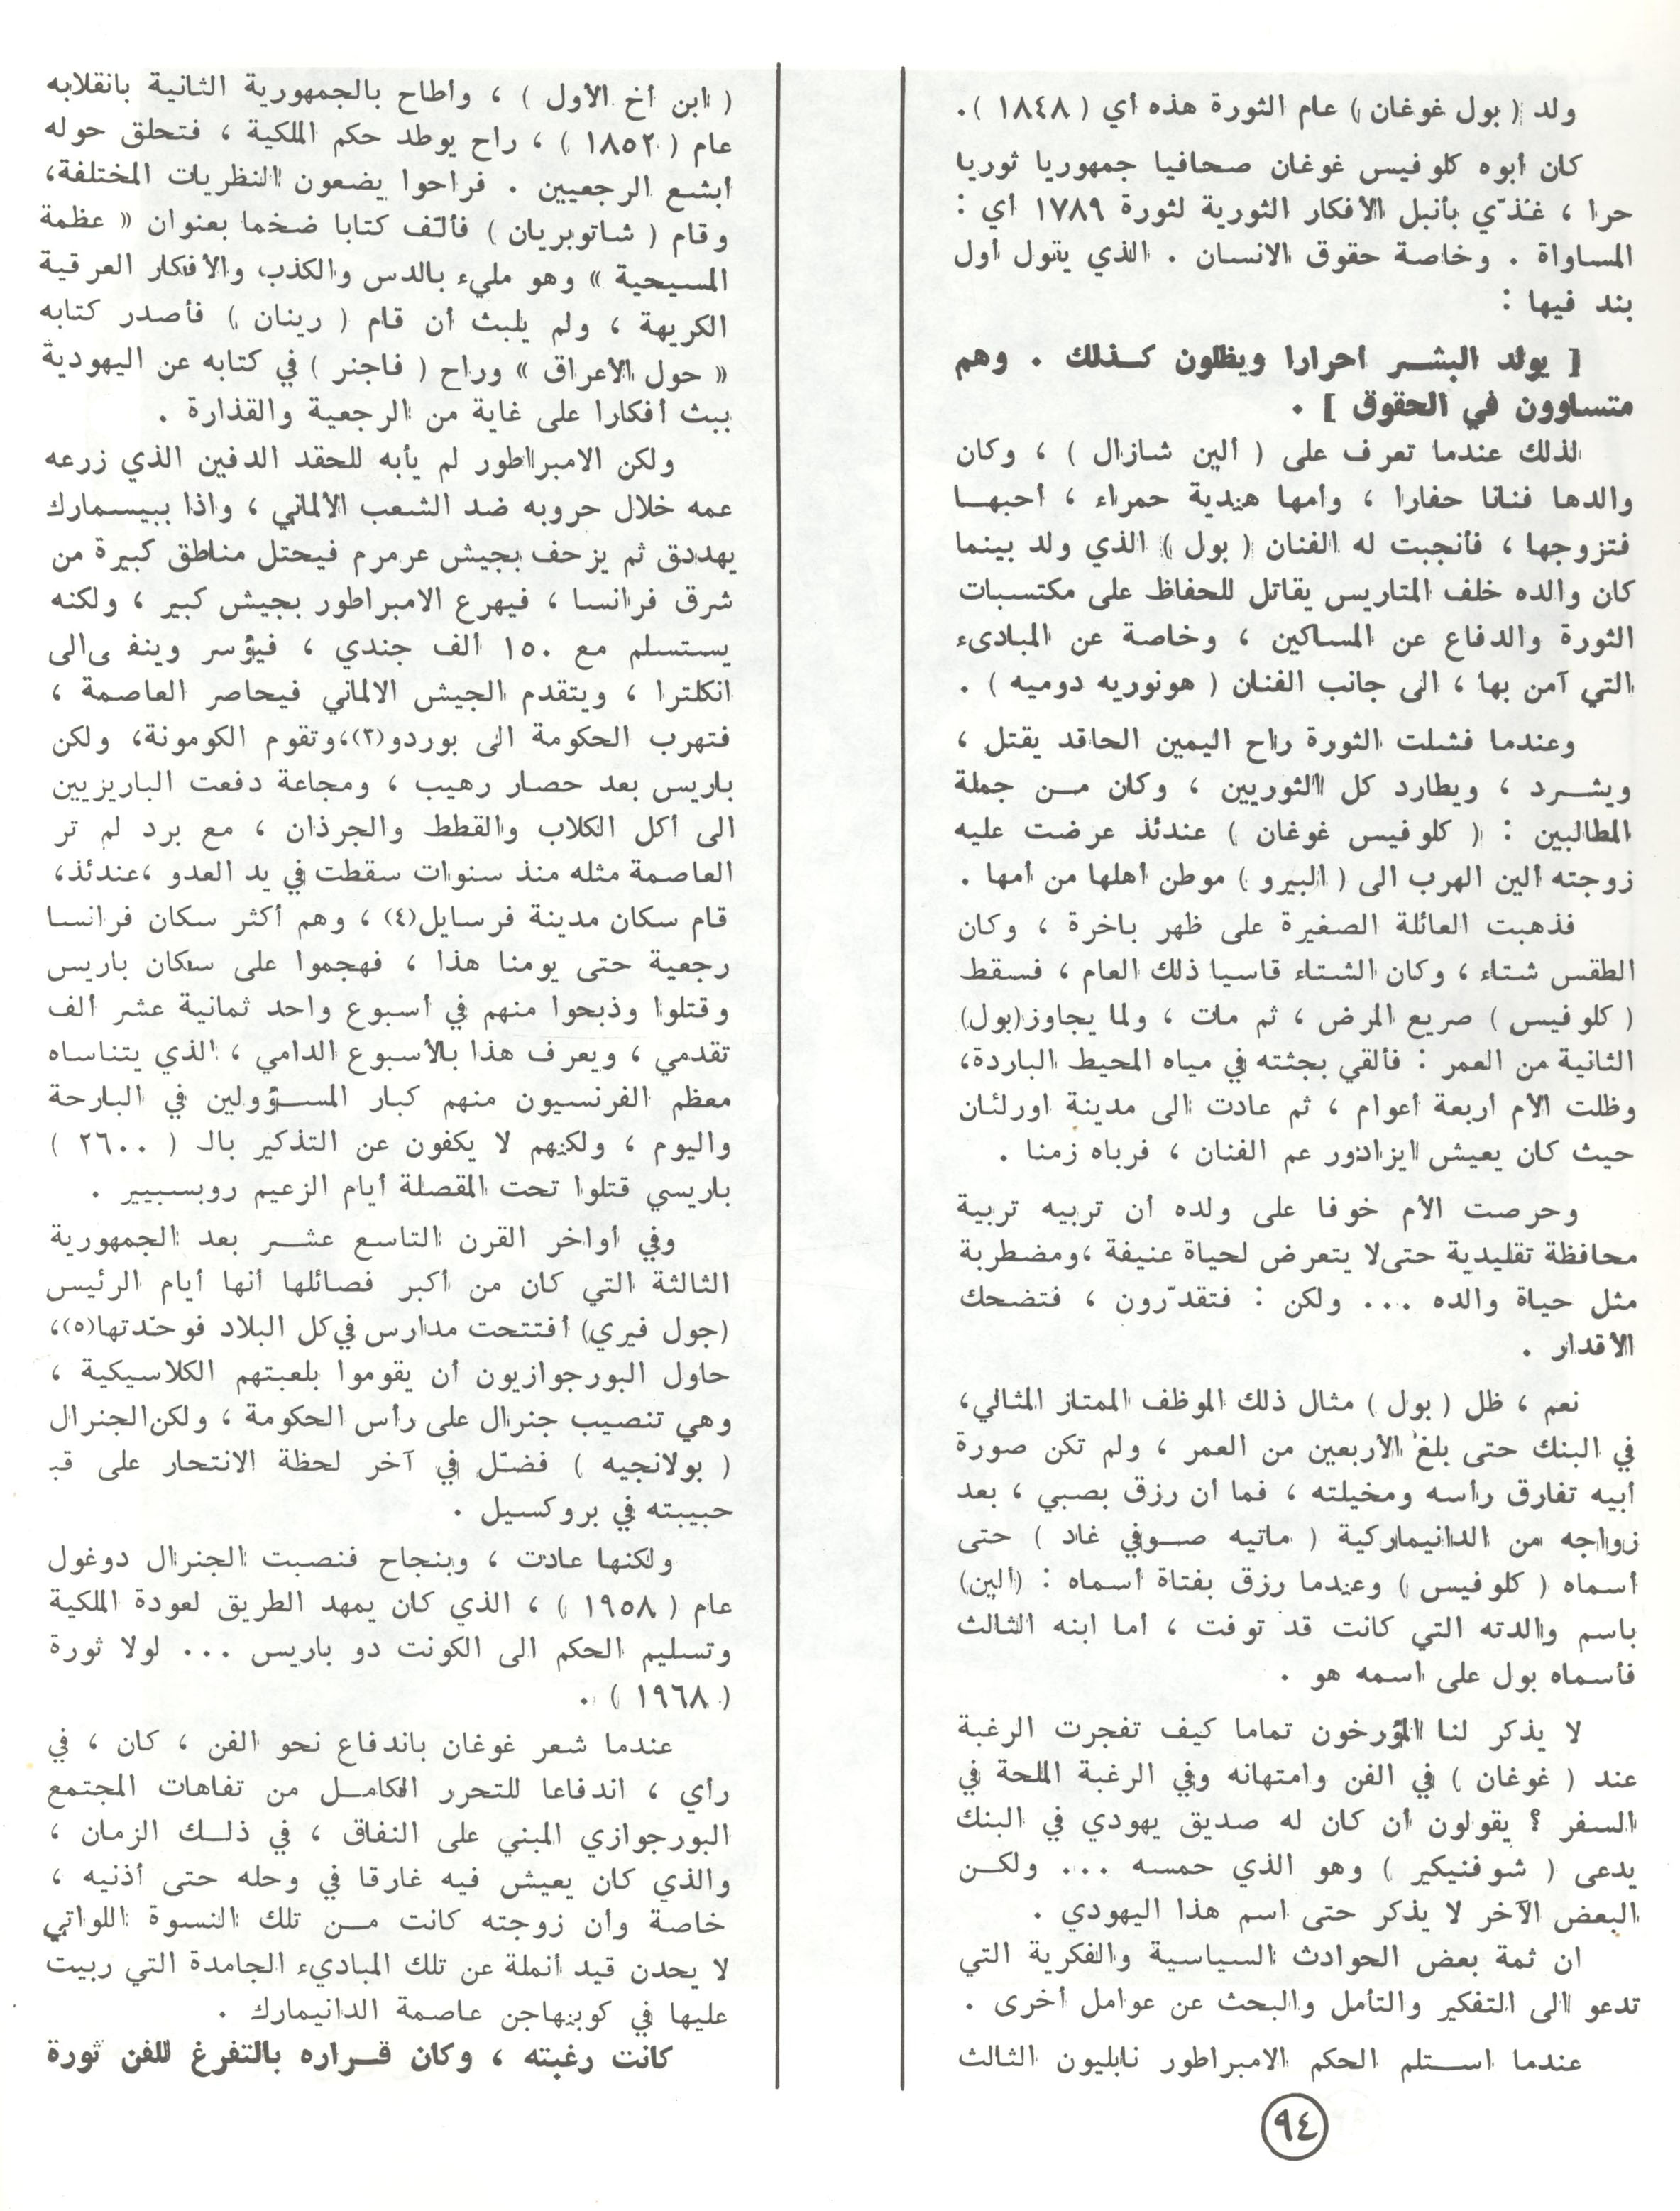 ولد ( بول غوغان ) عام الثورة هذه أي ( ١٨٤٨ ).
كان أبوه كلوفيس غوغان صحافيا جمهوريا ثوريا
حرا ، غذّي بأنبل الأفكار الثورية لثورة ١٧٨٩ أي :
المساواة . وخاصة حقوق الانسان . الذي يقول أول
بند فيها :
[ يولد البشــر احرارا ويظلون كــذلك . وهم
متساوون في الحقوق ] .
لذلك عندما تعرف على ( ألين شازال ) ، وكان
والدها فنانا حفارا ، وأمها هندية حمراء ، أحبهــا
فتزوجها ، فأنجبت له الفنان ( بول ) الذي ولد بينما
كان والده خلف المتاريس يقاتل للحفاظ على مكتسبات
الثورة والدفاع عن المساكين ، وخاصة عن المبادىء
التي آمن بها ، الى جانب الفنان ( هونوريه دوميه ) .
وعندما فشلت الثورة راح اليمين الحاقد يقتل ،
ويشــرد ، ويطارد كل الثوريين ، وكان مــن جملة
المطالبين : ( كلوفيس غوغان ) عندئذ عرضت عليه
زوجته ألين الهرب الى ( البيرو ) موطن أهلها من أمها .
فذهبت العائلة الصغيرة على ظهر باخرة ، وكان
الطقس شتاء ، وكان الشتاء قاسيا ذلك العام ، فسقط
( كلوفيس ) صريع المرض ، ثم مات ، ولما يجاوز(بول)
الثانية من العمر : فألقي بجثته في مياه المحيط الباردة،
وظلت الأم أربعة أعوام ، ثم عادت الى مدينة اورلئان
حيث كان يعيش ايزادور عم الفنان ، فرباه زمنا .
وحرصت الأم خوفا على ولده أن تربيه تربية
محافظة تقليدية حتى لا يتعرض لحياة عنيفة ،ومضطربة
مثل حياة والده ... ولكن : فتقدّرون ، فتضحك
الأقدار .
نعم ، ظل ( بول ) مثال ذلك الموظف الممتاز المثالي،
في البنك حتى بلغ الأربعين من العمر ، ولم تكن صورة
أبيه تفارق رأسه ومخيلته ، فما أن رزق بصبي ، بعد
زواجه من الدانيماركية ( ماتيه صــوفي غاد ) حتى
أسماه ( كلوفيس ) وعندما رزق بفتاة أسماه : (الين)
باسم والدته التي كانت قد توفت ، أما ابنه الثالث
فأسماه بول على اسمه هو .
لا يذكر لنا المؤرخون تماما كيف تفجرت الرغبة
عند ( غوغان ) في الفن وامتهانه وفي الرغبة الملحة في
السفر ؟ يقولون أن كان له صديق يهودي في البنك
يدعى ( شوفنيكير ) وهو الذي حمسه ... ولكــن
البعض الآخر لا يذكر حتى اسم هذا اليهودي .
ان ثمة بعض الحوادث السياسية والفكرية التي
تدعو الى التفكير والتأمل والبحث عن عوامل أخرى .
عندما استلم الحكم الامبراطور نابليون الثالث
( ابن أخ الأول ) ، وأطاح بالجمهورية الثانية بانقلابه
عام ( ١٨٥٢ ) ، راح يوطد حكم الملكية ، فتحلق حوله
أبشع الرجعيين . فراحوا يضعون النظريات المختلفة،
وقام ( شاتوبريان ) فألف كتابا ضخما بعنوان « عظمة
المسيحية » وهو مليء بالدس والكذب والأفكار العرقية
الكريهة ، ولم يلبث أن قام ( رينان ) فأصدر كتابه
« حول الأعراق » وراح ( فاجنر ) في كتابه عن اليهودية
يبث أفكارا على غاية من الرجعية والقذارة .
ولكن الامبراطور لم يأبه للحقد الدفين الذي زرعه
عمه خلال حروبه ضد الشعب الألماني ، واذا ببيسمارك
يهددق ثم يزحف بجيش عرمرم فيحتل مناطق كبيرة من
شرق فرانسا ، فيهرع الامبراطور بجيش كبير ، ولكنه
يستسلم مع ١٥٠ ألف جندي ، فيؤسر وينفى الى
انكلترا ، ويتقدم الجيش الالماني فيحاصر العاصمة ،
فتهرب الحكومة الى بوردو(٣)،وتقوم الكومونة، ولكن
باريس بعد حصار رهيب ، ومجاعة دفعت الباريزيين
الى أكل الكلاب والقطط والجرذان ، مع برد لم تر
العاصمة مثله منذ سنوات سقطت في يد العدو ،عندئذ،
قام سكان مدينة فرسايل(٤) ، وهم أكثر سكان فرانسا
رجعية حتى يومنا هذا ، فهجموا على سكان باريس
وقتلوا وذبحوا منهم في أسبوع واحد ثمانية عشر ألف
تقدمي ، ويعرف هذا بالأسبوع الدامي ، الذي يتناساه
معظم الفرنسيون منهم كبار المســؤولين في البارحة
واليوم ، ولكنهم لا يكفون عن التذكير بالـ ( ٢٦٠٠ )
باريسي قتلوا تحت المقصلة أيام الزعيم روبسبيير .
وفي أواخر القرن التاسع عشــر بعد الجمهورية
الثالثة التي كان من أكبر فصائلها أنها أيام الرئيس
(جول فيري) أفتتحت مدارس في كل البلاد فوحّدتها(٥)،
حاول البورجوازيون أن يقوموا بلعبتهم الكلاسيكية ،
وهي تنصيب جنرال على رأس الحكومة ، ولكن الجنرال
( بولانجيه ) فضّل في آخر لحظة الانتحار على قبـ
حبيبته في بروكسيل .
ولكنها عادت ، وبنجاح فنصبت الجنرال دوغول
عام ( ١٩٥٨ ) ، الذي كان يمهد الطريق لعودة الملكية
وتسليم الحكم الى الكونت دو باريس ... لولا ثورة
( ١٩٦٨ ) .
عندما شعر غوغان باندفاع نحو الفن ، كان ، في
رأي ، اندفاعا للتحرر الكامــل من تفاهات المجتمع
البورجوازي المبني على النفاق ، في ذلــك الزمان ،
والذي كان يعيش فيه غارقا في وحله حتى أذنيه ،
خاصة وأن زوجته كانت مــن تلك النسوة اللواتي
لا يحدن قيد أنملة عن تلك المباديء الجامدة التي ربيت
عليها في كوبنهاجن عاصمة الدانيمارك .
كانت رغبته ، وكان قــراره بالتفرغ للفن ثورة
٩٤